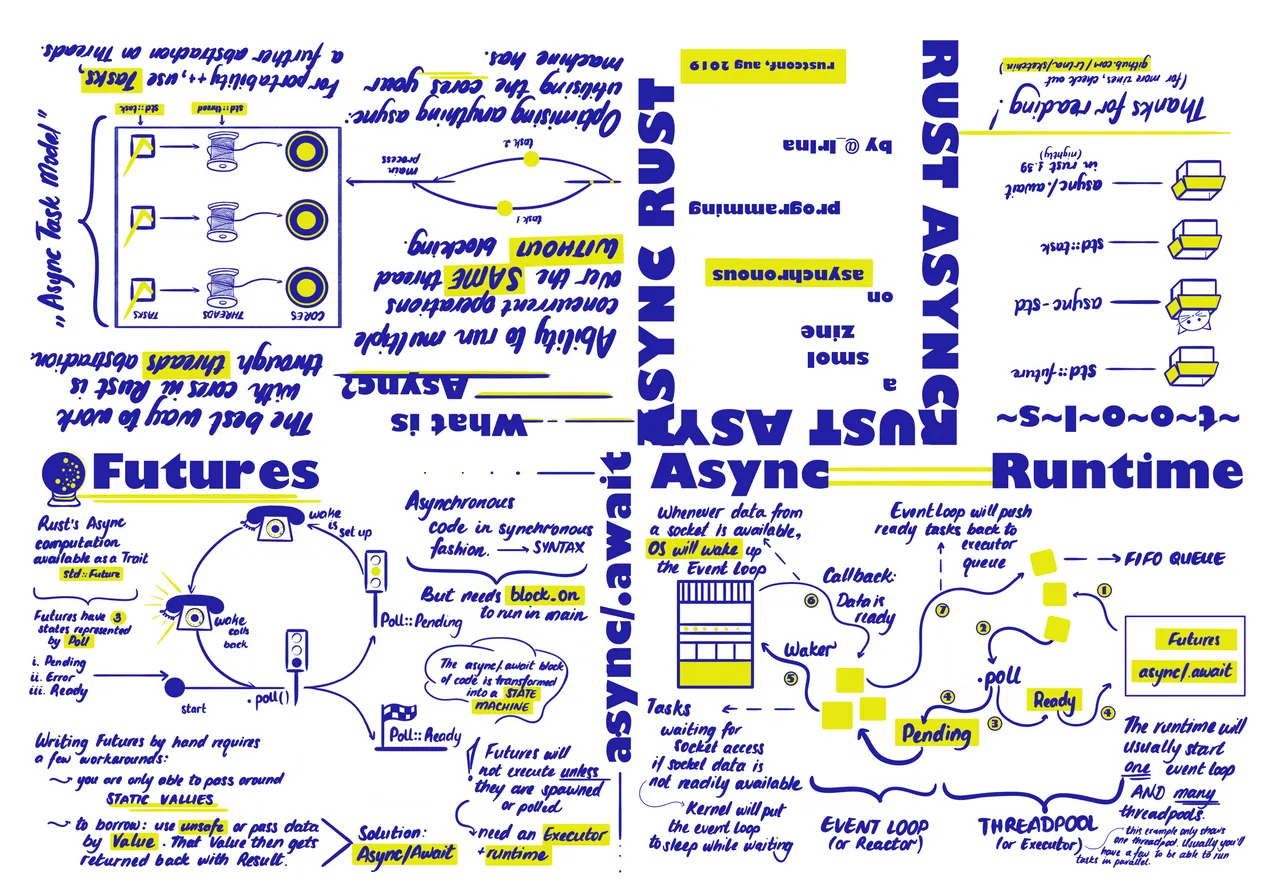 RUST ASYNC RUST ASYNC RUST
a
smol
zine
on
asynchronous
programming
by @_irina
rustconf, aug 2019
What is
Async?
Ability to run multiple
concurrent operations
over the SAME thread
WITHOUT blocking.
task 1
task 2
main
process
Optimising anything async:
utilising the cores your
machine has.
The best way to work
with cores in Rust is
through threads abstraction.
„Async Task Model”
CORES
THREADS
TASKS
std::thread
std::task
For portability ++, use Tasks,
a further abstraction on Threads.
Futures
Rust's Async
computation
available as a Trait
std::Future
Futures have 3
states represented
by Poll
i. Pending
ii. Error
iii. Ready
start
.poll()
wake
is
set up
wake
calls
back
Poll::Pending
Poll::Ready
Writing Futures by hand requires
a few workarounds:
~> you are only able to pass around
STATIC VALUES
~> to borrow: use unsafe or pass data
by Value. That Value then gets
returned back with Result.
Solution:
Async/Await
async/.await
Asynchronous
code in synchronous
fashion. → SYNTAX
But needs block_on
to run in main
The async/.await block
of code is transformed
into a STATE
MACHINE
! Futures will
not execute unless
they are spawned
or polled
need an Executor
+ runtime
Async Runtime
Whenever data from
a socket is available,
OS will wake up
the Event loop
Event Loop will push
ready tasks back to
executor
queue
FIFO QUEUE
Callback:
Data is
ready
Waker
1
2
3
4
4
5
6
7
Futures
async/.await
.poll
Ready
Pending
Tasks
waiting for
socket access
if socket data is
not readily available
Kernel will put
the event loop
to sleep while waiting
EVENT LOOP
(or Reactor)
THREADPOOL
(or Executor)
The runtime will
usually start
one event loop
AND many
threadpools.
this example only shows
one threadpool. Usually you'll
have a few to be able to run
tasks in parallel.
~t~o~o~l~s~
std::future
async-std
std::task
async/.await
in rust 1.39
(nightly)
Thanks for reading!
(for more zines, check out
github.com/lrlna/sketchin)